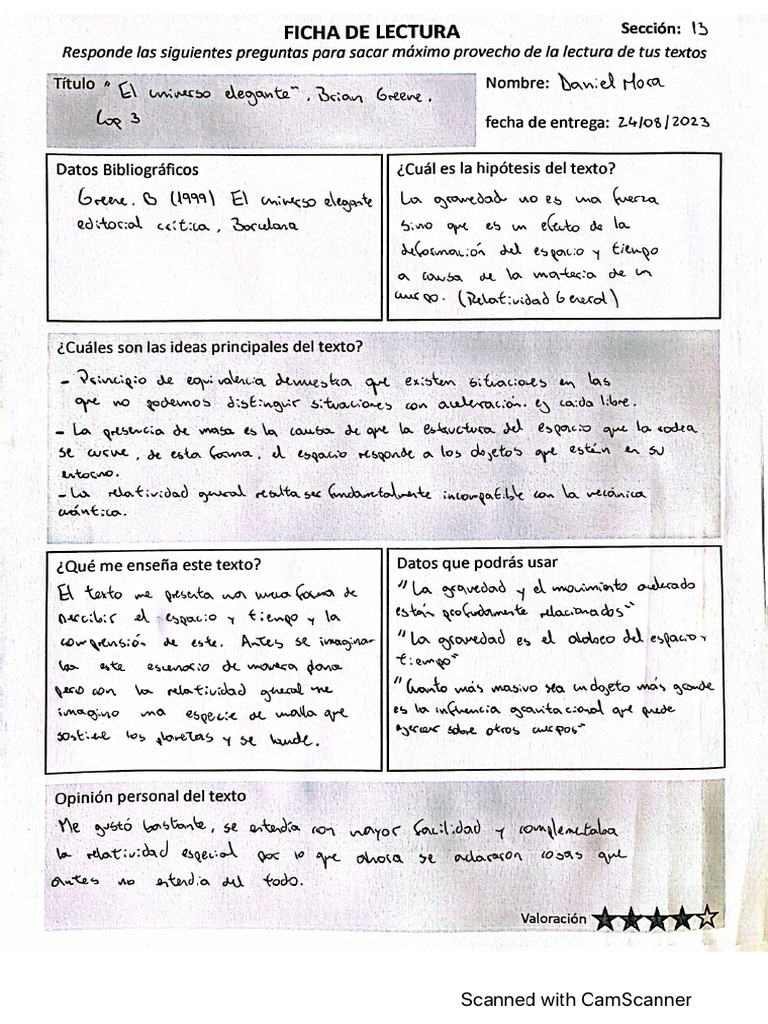 FICHA DE LECTURA
Sección: 13
Responde las siguientes preguntas para sacar máximo provecho de la lectura de tus textos
Título "El universo elegante", Brian Greene.
Cap 3
Nombre: Daniel Mora
fecha de entrega: 24/08/2023
Datos Bibliográficos
Greene. B (1999) El universo elegante
editorial crítica, Barcelana
¿Cuál es la hipótesis del texto?
La gravedad no es una fuerza
sino que es un efecto de la
deformación del espacio y tiempo
a causa de la materia de un
cuerpo. (Relatividad General)
¿Cuáles son las ideas principales del texto?
- Principio de equivalencia demuestra que existen situaciones en las
que no podemos distinguir situaciones con aceleración. ej caída libre.
- La presencia de masa es la causa de que la estructura del espacio que la rodea
se curve, de esta forma, el espacio responde a los objetos que están en su
entorno.
- La relatividad general resulta ser fundametalmente incompatible con la mecánica
cuántica.
¿Qué me enseña este texto?
El texto me presenta una nueva forma de
percibir el espacio y tiempo y la
comprensión de este. Antes se imagina-
ba este escenario de manera plana
pero con la relatividad general me
imagino una especie de malla que
sostiene los planetas y se hunde.
Datos que podrás usar
"La gravedad y el movimiento acelerado
están profundamente relacionados"
"La gravedad es el alabeo del espacio y
tiempo"
"Cuanto más masivo sea un objeto más grande
es la influencia gravitacional que puede
ejercer sobre otros cuerpos"
Opinión personal del texto
Me gustó bastante, se entendía con mayor facilidad y complemetaba
la relatividad especial por lo que ahora se aclararon cosas que
antes no entendía del todo.
Valoración
Scanned with CamScanner